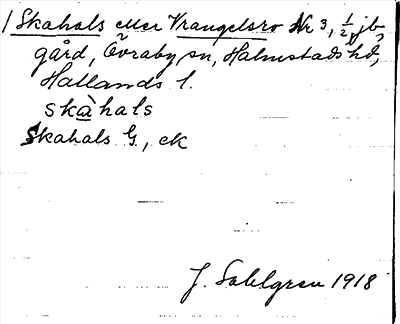 1 Skahals eller Vrangelsro Nr 3, 1/2 jb,
gård, Övraby sn, Halmstads hd,
Hallands l.
skàhals
Skahals G., ek
J. Sahlgren 1918